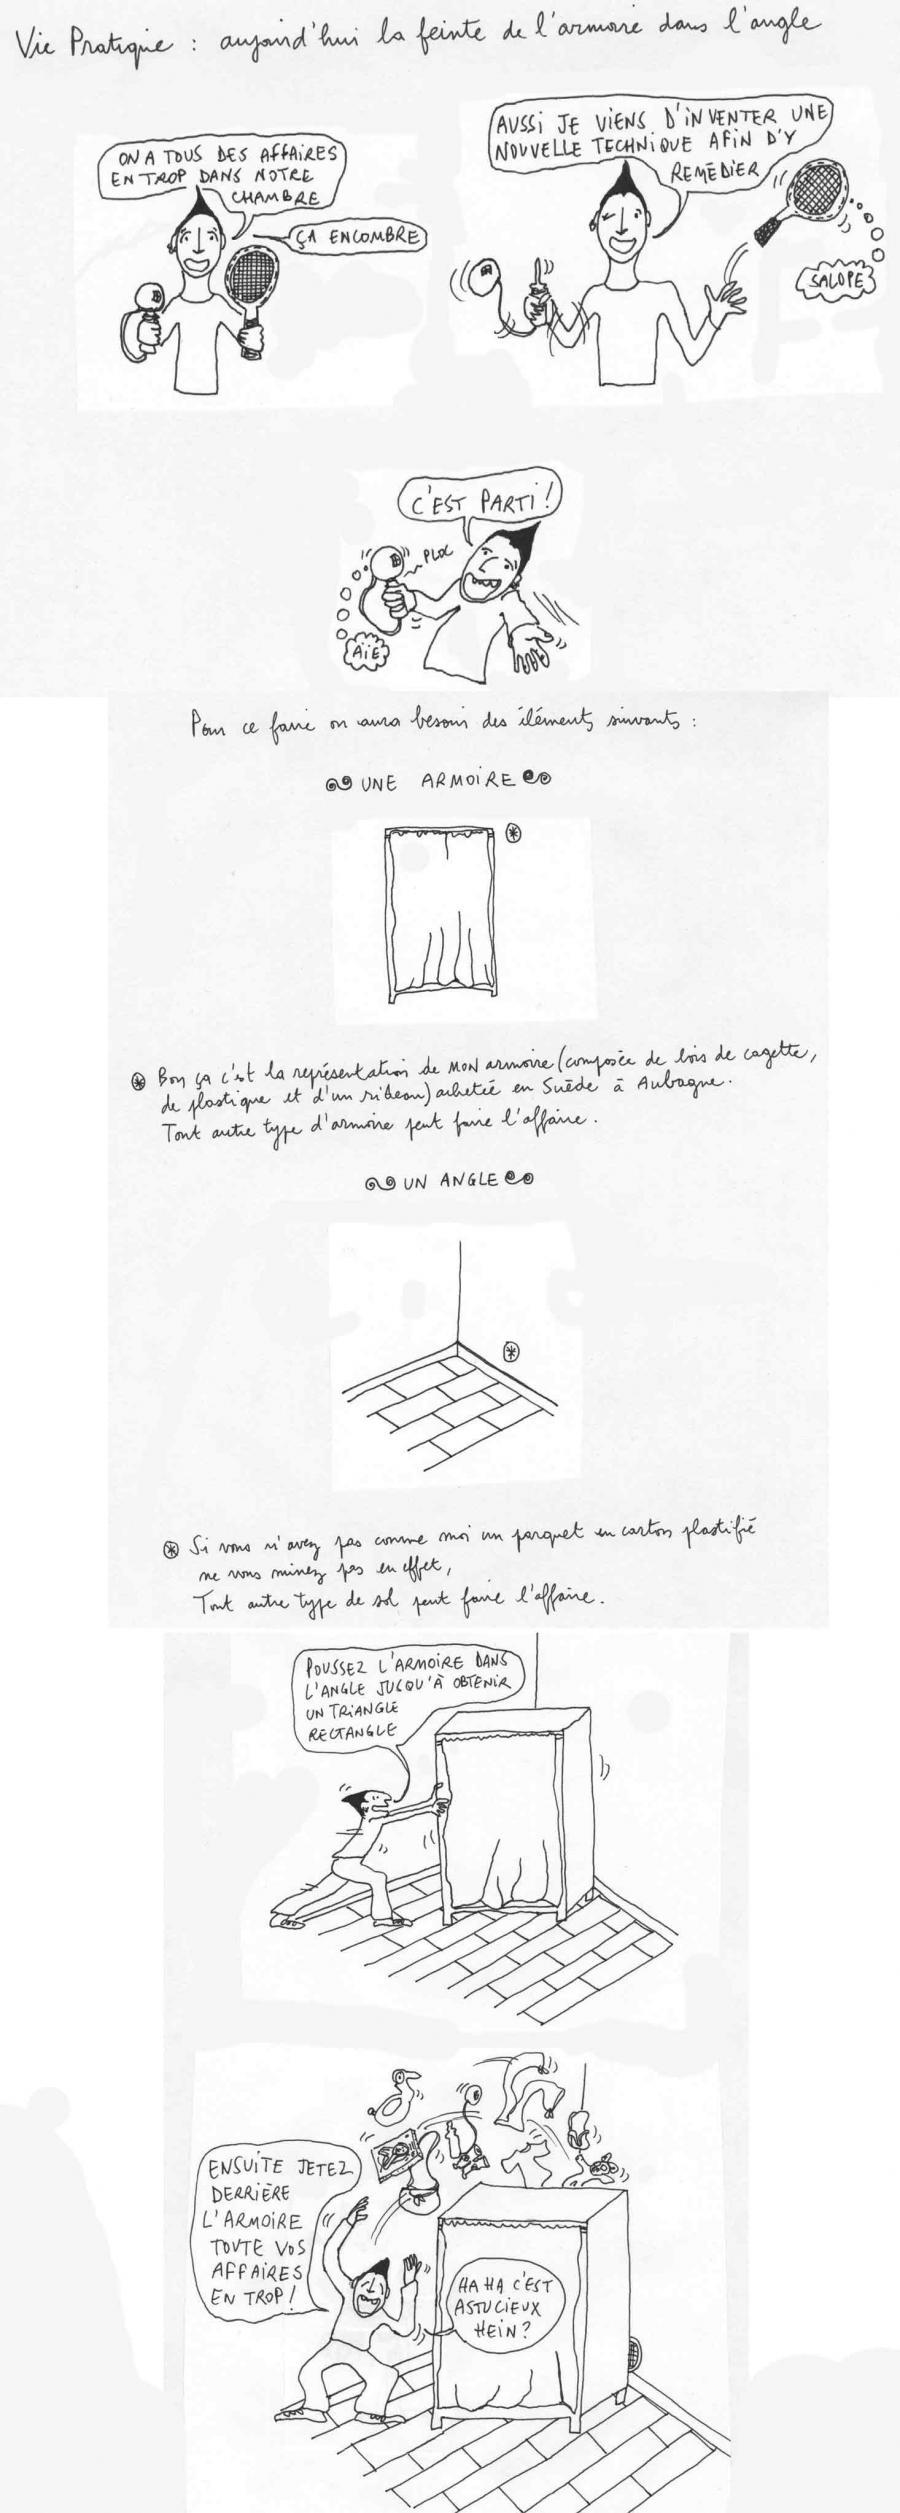 Vie Pratique : aujourd'hui la feinte de l'armoire dans l'angle
ON A TOUS DES AFFAIRES
EN TROP DANS NOTRE
CHAMBRE
ÇA ENCOMBRE
AUSSI JE VIENS D'INVENTER UNE
NOUVELLE TECHNIQUE AFIN D'Y
REMÉDIER
SALOPE
C'EST PARTI !
PLOC
AÏE
Pour ce faire on aura besoin des éléments suivants :
UNE ARMOIRE
Bon ça c'est la représentation de MON armoire (composée de bois de cagette,
de plastique et d'un rideau) achetée en Suède à Aubagne.
Tout autre type d'armoire peut faire l'affaire.
UN ANGLE
Si vous n'avez pas comme moi un parquet en carton plastifié
ne vous minez pas en effet,
Tout autre type de sol peut faire l'affaire.
POUSSEZ L'ARMOIRE DANS
L'ANGLE JUSQU'À OBTENIR
UN TRIANGLE
RECTANGLE
ENSUITE JETEZ
DERRIÈRE
L'ARMOIRE
TOUTE VOS
AFFAIRES
EN TROP !
HA HA C'EST
ASTUCIEUX
HEIN ?